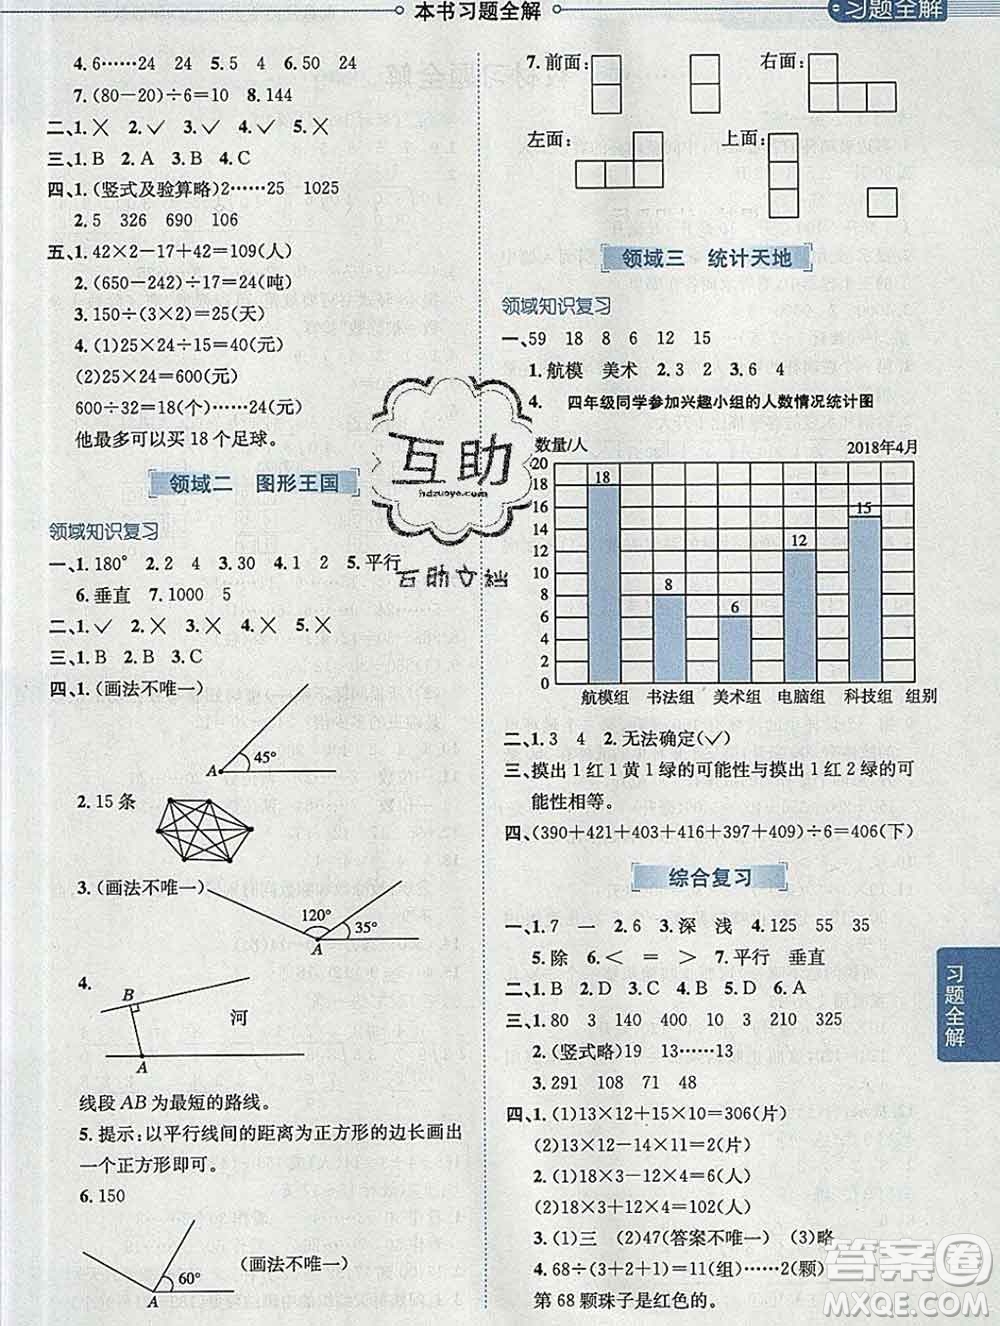 本书习题全解
习题全解
4. 6……24 24 5. 5 4 6. 50 24
7. (80－20)÷6＝10 8. 144
二、1. ✕ 2. ✓ 3. ✓ 4. ✓ 5. ✕
三、1. B 2. A 3. B 4. C
四、1. (竖式及验算略)2……25 1025
2. 5 326 690 106
五、1. 42×2－17＋42＝109(人)
2. (650－242)÷17＝24(吨)
3. 150÷(3×2)＝25(天)
4. (1)25×24÷15＝40(元)
(2)25×24＝600(元)
600÷32＝18(个)……24(元)
他最多可以买 18 个足球。
领域二 图形王国
领域知识复习
一、1. 180° 2. 2 4 3. 30 4. 1 2 5. 平行
6. 垂直 7. 1000 5
二、1. ✓ 2. ✕ 3. ✕ 4. ✕ 5. ✕
三、1. B 2. B 3. C
四、1. (画法不唯一)
45°
A
2. 15 条
3. (画法不唯一)
120°
35°
A
4.
B
河
A
线段 AB 为最短的路线。
5. 提示：以平行线间的距离为正方形的边长画出
一个正方形即可。
6. 150
(画法不唯一)
60°
A
7. 前面： 右面：
左面： 上面：
领域三 统计天地
领域知识复习
一、59 18 8 6 12 15
1. 航模 美术 2. 3 2 3. 6 4
4. 四年级同学参加兴趣小组的人数情况统计图
数量/人 2018年4月
20
18
16
14
12
10
8
6
4
2
0
18
8
6
12
15
航模组 书法组 美术组 电脑组 科技组 组别
二、1. 3 4 2. 无法确定(✓)
三、摸出 1 红 1 黄 1 绿的可能性与摸出 1 红 2 绿的可
能性相等。
四、(390＋421＋403＋416＋397＋409)÷6＝406(下)
综合复习
一、1. 7 一 2. 6 3. 深 浅 4. 125 55 35
5. 除 6. ＜ ＝ ＞ 7. 平行 垂直
二、1. B 2. D 3. C 4. A 5. D 6. A
三、1. 80 3 140 400 10 3 210 325
2. (竖式略)19 13……13
3. 291 108 71 48
四、1. (1)13×12＋15×10＝306(片)
(2)13×12－14×11＝2(片)
2. (1)18×3－12×4＝6(人)
(2)18×3＋12×4＝102(人)
3. (1)三 (2)47(答案不唯一) (3)略
4. 68÷(3＋2＋1)＝11(组)……2(颗)
第 68 颗珠子是红色的。
习题全解
互助
hdzuoye.com
互助文档
答案圈
MXQE.COM